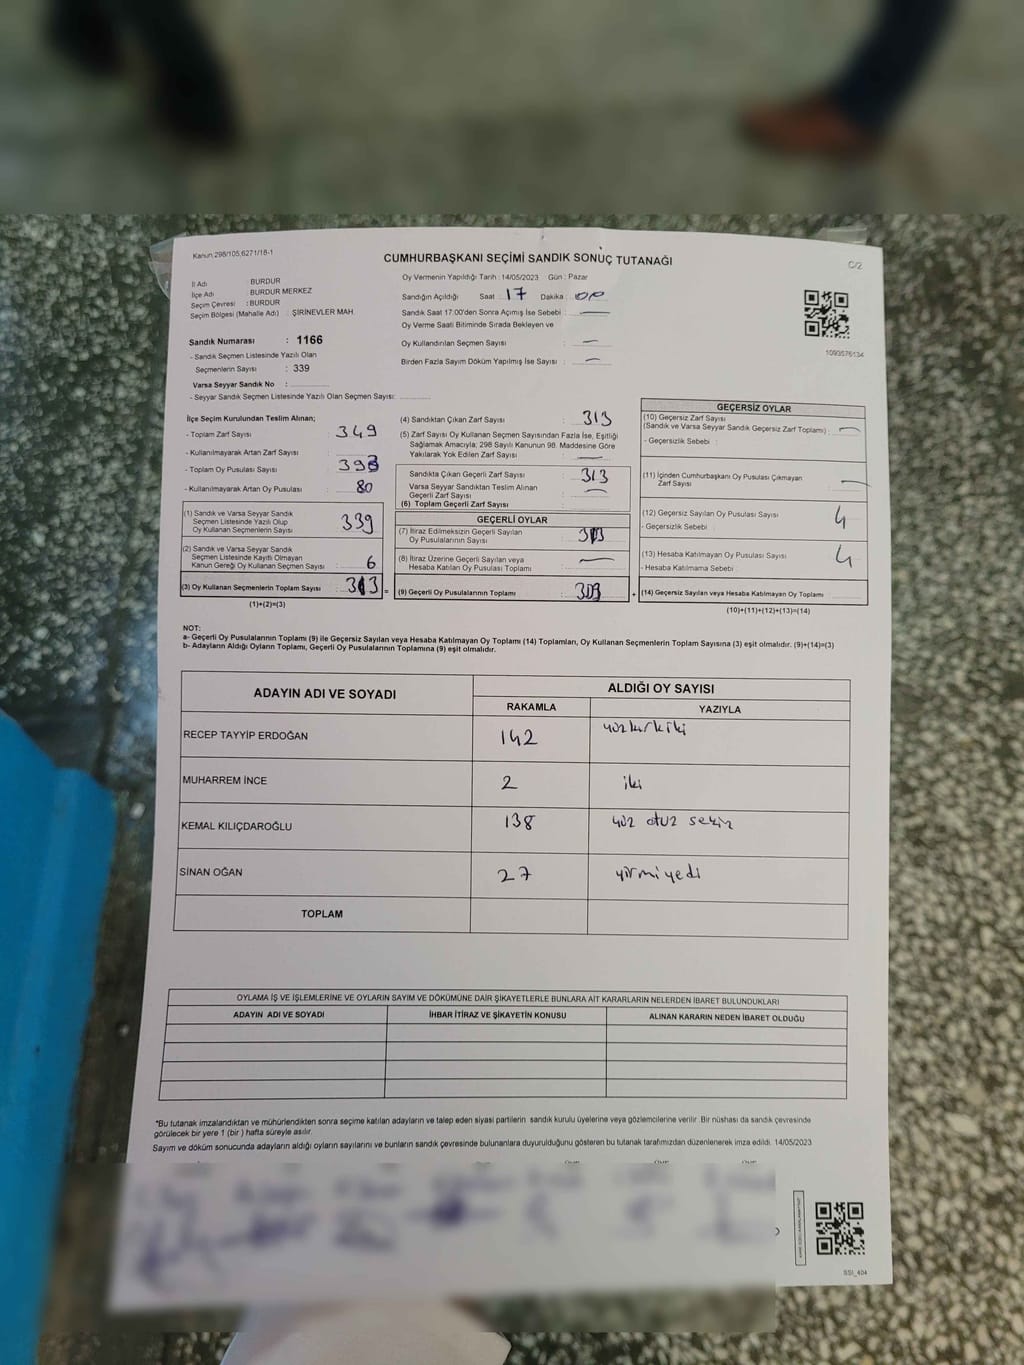 Kanun;298/105,6271/18-1
CUMHURBAŞKANI SEÇİMİ SANDIK SONUÇ TUTANAĞI
C/2
İl Adı : BURDUR
İlçe Adı : BURDUR MERKEZ
Seçim Çevresi : BURDUR
Seçim Bölgesi (Mahalle Adı) : ŞİRİNEVLER MAH.
Sandık Numarası : 1166
- Sandık Seçmen Listesinde Yazılı Olan
Seçmenlerin Sayısı : 339
Varsa Seyyar Sandık No :
- Seyyar Sandık Seçmen Listesinde Yazılı Olan Seçmen Sayısı:
Oy Vermenin Yapıldığı Tarih : 14/05/2023 Gün : Pazar
Sandığın Açıldığı Saat : 17 Dakika : 00
Sandık Saat 17:00'den Sonra Açımış İse Sebebi : —
Oy Verme Saati Bitiminde Sırada Bekleyen ve
Oy Kullandırılan Seçmen Sayısı : —
Birden Fazla Sayım Döküm Yapılmış İse Sayısı : —
1093576134
İlçe Seçim Kurulundan Teslim Alınan;
- Toplam Zarf Sayısı : 349
- Kullanılmayarak Artan Zarf Sayısı :
- Toplam Oy Pusulası Sayısı : 393
- Kullanılmayarak Artan Oy Pusulası : 80
(1) Sandık ve Varsa Seyyar Sandık
Seçmen Listesinde Yazılı Olup
Oy Kullanan Seçmenlerin Sayısı : 339
(2) Sandık ve Varsa Seyyar Sandık
Seçmen Listesinde Kayıtlı Olmayan
Kanun Gereği Oy Kullanan Seçmen Sayısı : 6
(3) Oy Kullanan Seçmenlerin Toplam Sayısı : 313 =
(1)+(2)=(3)
(4) Sandıktan Çıkan Zarf Sayısı : 313
(5) Zarf Sayısı Oy Kullanan Seçmen Sayısından Fazla İse, Eşitliği
Sağlamak Amacıyla; 298 Sayılı Kanunun 98. Maddesine Göre
Yakılarak Yok Edilen Zarf Sayısı : —
Sandıkta Çıkan Geçerli Zarf Sayısı : 313
Varsa Seyyar Sandıktan Teslim Alınan
Geçerli Zarf Sayısı : —
(6) Toplam Geçerli Zarf Sayısı :
GEÇERLİ OYLAR
(7) İtiraz Edilmeksizin Geçerli Sayılan
Oy Pusulalarının Sayısı :
(8) İtiraz Üzerine Geçerli Sayılan veya
Hesaba Katılan Oy Pusulası Toplamı : —
(9) Geçerli Oy Pusulalarının Toplamı : 309 +
GEÇERSİZ OYLAR
(10) Geçersiz Zarf Sayısı
(Sandık ve Varsa Seyyar Sandık Geçersiz Zarf Toplamı) : —
- Geçersizlik Sebebi :
(11) İçinden Cumhurbaşkanı Oy Pusulası Çıkmayan
Zarf Sayısı : —
(12) Geçersiz Sayılan Oy Pusulası Sayısı : 4
- Geçersizlik Sebebi :
(13) Hesaba Katılmayan Oy Pusulası Sayısı : 4
- Hesaba Katılmama Sebebi :
(14) Geçersiz Sayılan veya Hesaba Katılmayan Oy Toplamı :
(10)+(11)+(12)+(13)=(14)
NOT:
a- Geçerli Oy Pusulalarının Toplamı (9) ile Geçersiz Sayılan veya Hesaba Katılmayan Oy Toplamı (14) Toplamları, Oy Kullanan Seçmenlerin Toplam Sayısına (3) eşit olmalıdır. (9)+(14)=(3)
b- Adayların Aldığı Oyların Toplamı, Geçerli Oy Pusulalarının Toplamına (9) eşit olmalıdır.
ADAYIN ADI VE SOYADI
ALDIĞI OY SAYISI
RAKAMLA YAZIYLA
RECEP TAYYİP ERDOĞAN 142 yüzkırkiki
MUHARREM İNCE 2 iki
KEMAL KILIÇDAROĞLU 138 yüz otuz sekiz
SİNAN OĞAN 27 yirmiyedi
TOPLAM
OYLAMA İŞ VE İŞLEMLERİNE VE OYLARIN SAYIM VE DÖKÜMÜNE DAİR ŞİKAYETLERLE BUNLARA AİT KARARLARIN NELERDEN İBARET BULUNDUKLARI
ADAYIN ADI VE SOYADI İHBAR İTİRAZ VE ŞİKAYETİN KONUSU ALINAN KARARIN NEDEN İBARET OLDUĞU
*Bu tutanak imzalandıktan ve mühürlendikten sonra seçime katılan adayların ve talep eden siyasi partilerin sandık kurulu üyelerine veya gözlemcilerine verilir. Bir nüshası da sandık çevresinde
görülecek bir yere 1 (bir) hafta süreyle asılır.
Sayım ve döküm sonucunda adayların aldığı oyların sayılarını ve bunların sandık çevresinde bulunanlara duyurulduğunu gösteren bu tutanak tarafımızdan düzenlenerek imza edildi. 14/05/2023
SSI_404